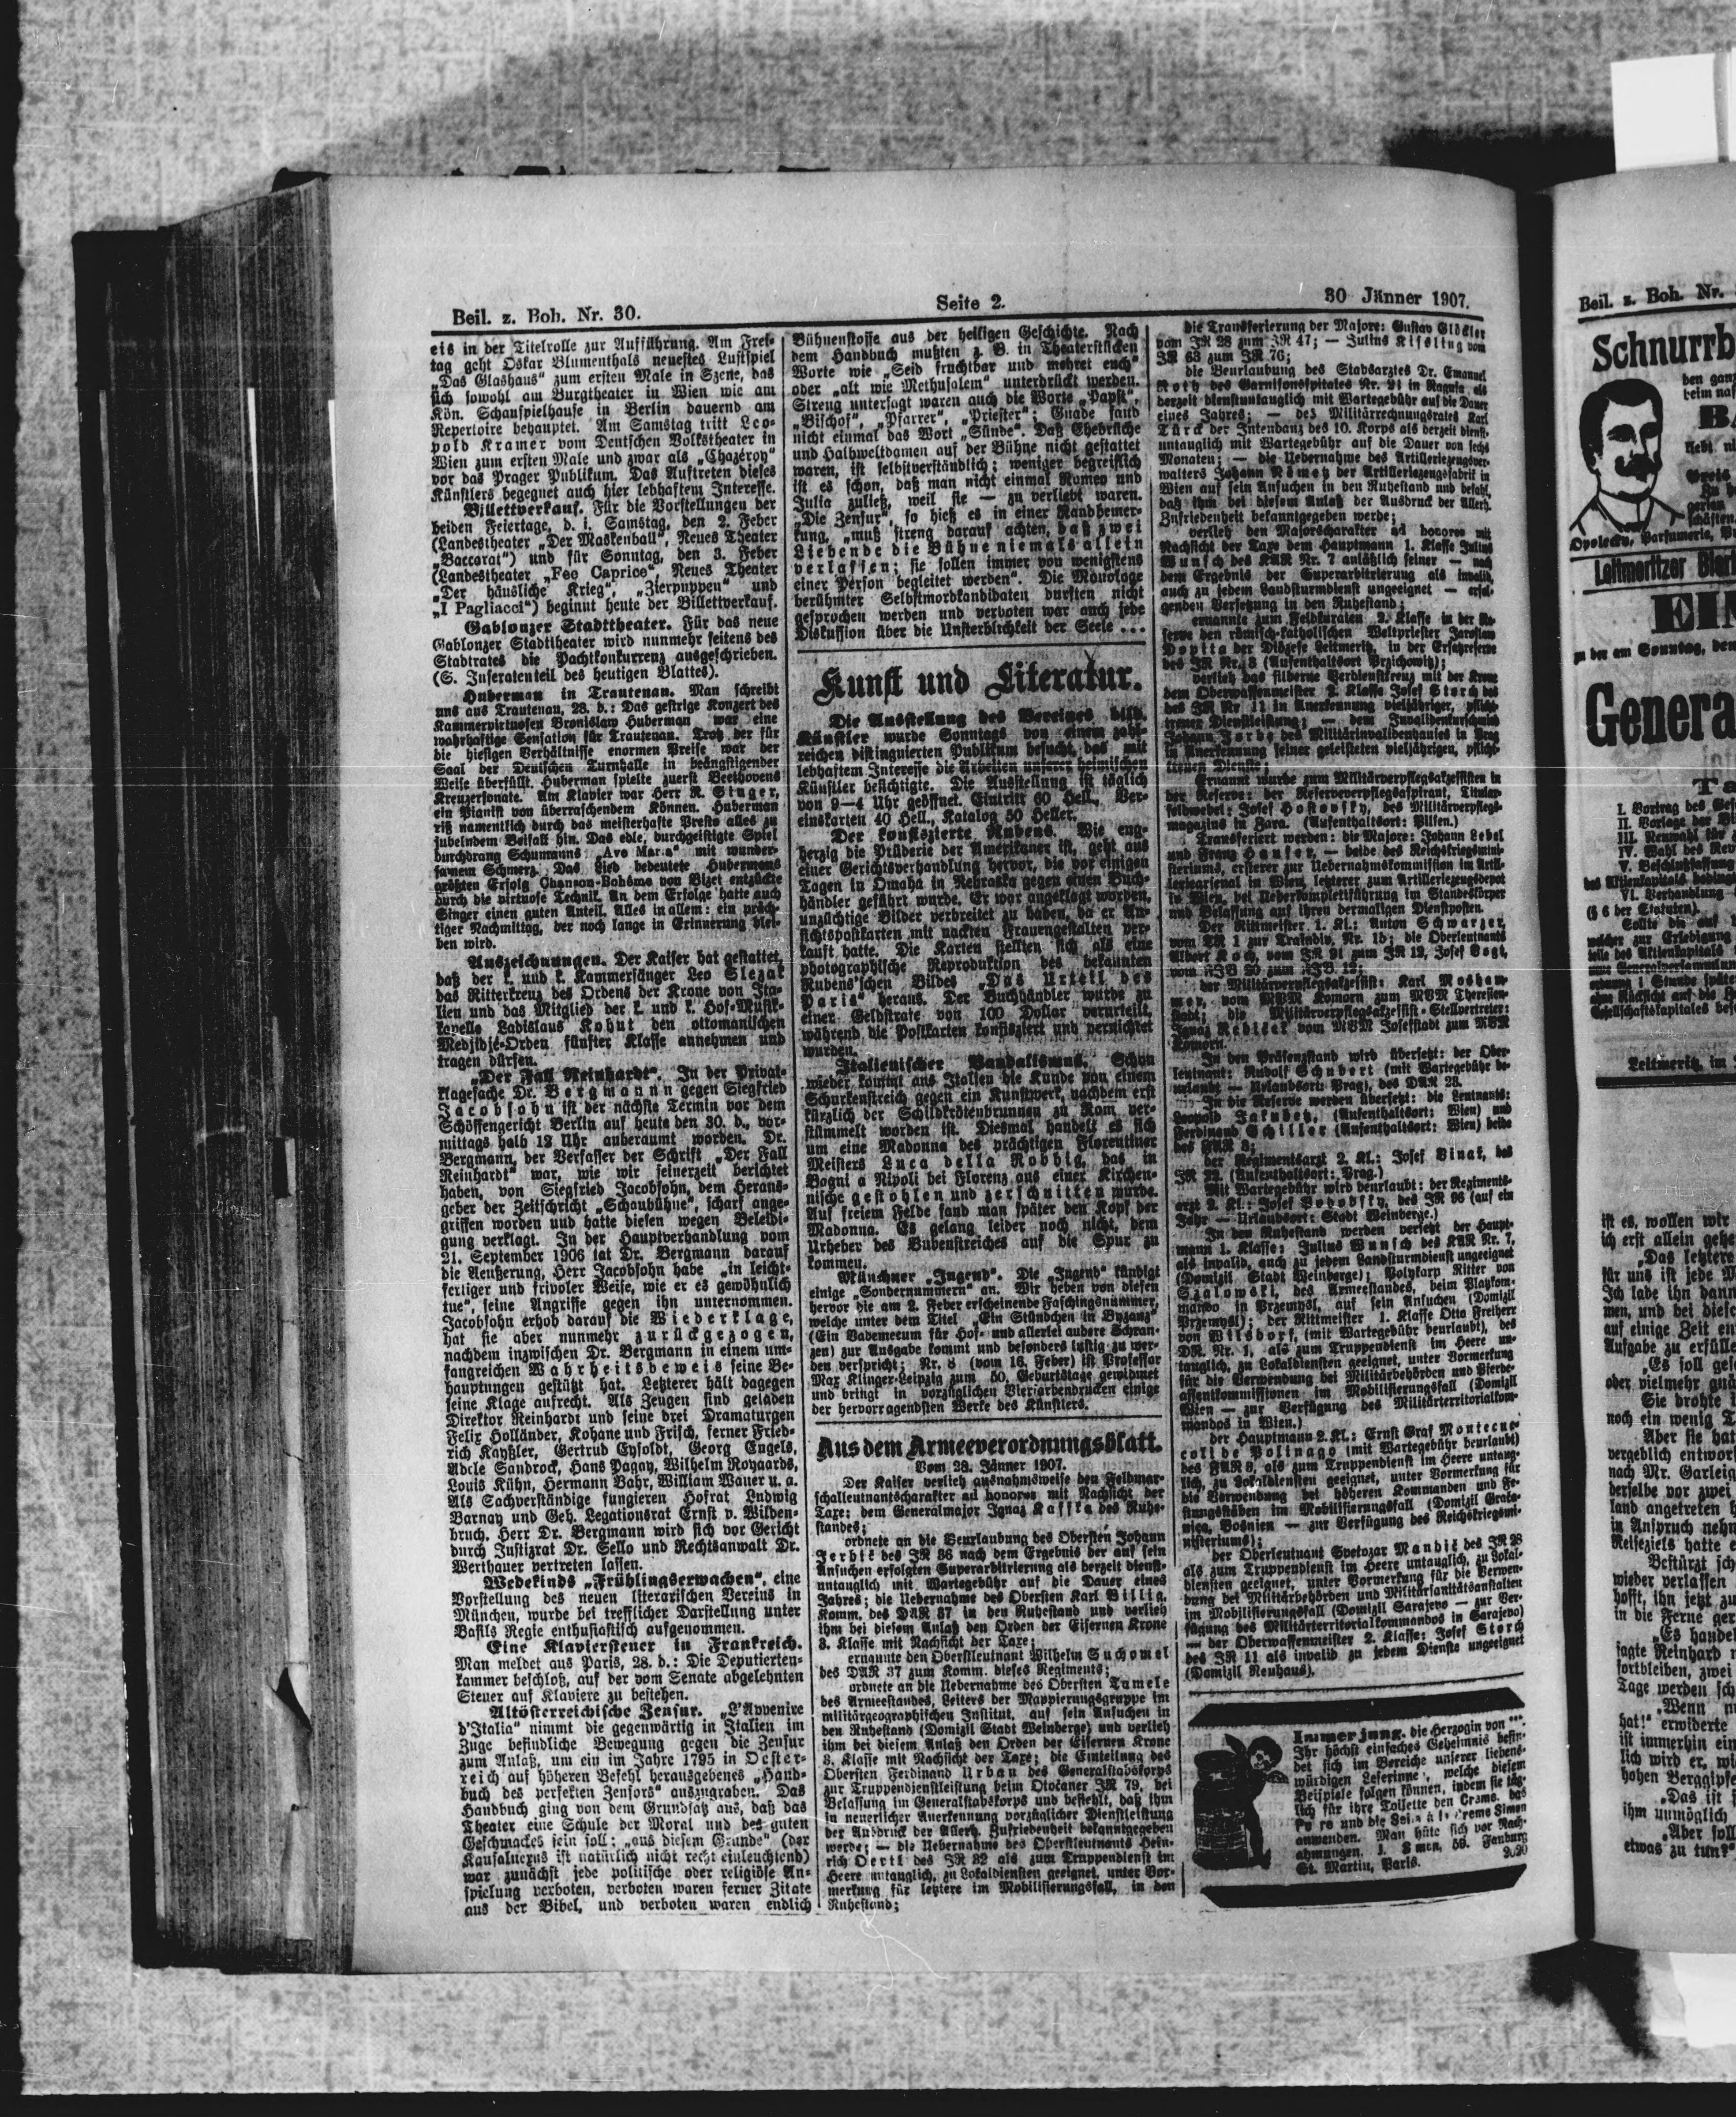 Beil. z. Boh. Nr. 30.
Seite 2.
30 Jänner 1907.
eis in der Titelrolle zur Aufführung. Am Frei-
tag geht Oskar Blumenthals neuestes Lustspiel
„Das Glashaus“ zum ersten Male in Szene, das
sich sowohl am Burgtheater in Wien wie am
Kön. Schauspielhause in Berlin dauernd am
Repertoire behauptet. Am Samstag tritt Leo-
pold Kramer vom Deutschen Volkstheater in
Wien zum ersten Male und zwar als „Chazéroy“
vor das Prager Publikum. Das Auftreten dieses
Künstlers begegnet auch hier lebhaftem Interesse.
Billettverkauf. Für die Vorstellungen der
beiden Feiertage, d. i. Samstag, den 2. Feber
(Landestheater „Der Maskenball“, Neues Theater
„Baccarat“) und für Sonntag, den 3. Feber
(Landestheater „Feo Caprice“, Neues Theater
„Der häusliche Krieg“, „Zierpuppen“ und
„I Pagliacci“) beginnt heute der Billettverkauf.
Gablonzer Stadttheater. Für das neue
Gablonzer Stadttheater wird nunmehr seitens des
Stadtrates die Pachtkonkurrenz ausgeschrieben.
(S. Inseratenteil des heutigen Blattes).
Huberman in Trautenau. Man schreibt
uns aus Trautenau, 28. d.: Das gestrige Konzert des
Kammervirtuosen Bronislaw Huberman war eine
wahrhaftige Sensation für Trautenau. Trotz der für
die hiesigen Verhältnisse enormen Preise war der
Saal der Deutschen Turnhalle in beängstigender
Weise überfüllt. Huberman spielte zuerst Beethovens
Kreuzersonate. Am Klavier war Herr R. Singer,
ein Pianist von überraschendem Können. Huberman
riß namentlich durch das meisterhafte Presto alles zu
jubelndem Beifall hin. Das edle, durchgeistigte Spiel
durchdrang Schumanns „Ave Maria“ mit wunder-
samem Schmerz. Das Lied bedeutete Hubermans
größten Erfolg Chanson-Bohême von Bizet entzückte
durch die virtuose Technik. An dem Erfolge hatte auch
Singer einen guten Anteil. Alles in allem: ein präch-
tiger Nachmittag, der noch lange in Erinnerung blei-
ben wird.
Auszeichnungen. Der Kaiser hat gestattet,
daß der k. und k. Kammersänger Leo Slezak
das Ritterkreuz des Ordens der Krone von Ita-
lien und das Mitglied der k. und k. Hof-Musik-
kapelle Ladislaus Kohut den ottomanischen
Medjidjé-Orden fünfter Klasse annehmen und
tragen dürfen.
„Der Fall Reinhardt“. In der Privat-
klagesache Dr. Bergmann gegen Siegfried
Jacobsohn ist der nächste Termin vor dem
Schöffengericht Berlin auf heute den 30. d., vor-
mittags halb 12 Uhr anberaumt worden. Dr.
Bergmann, der Verfasser der Schrift „Der Fall
Reinhardt“ war, wie wir seinerzeit berichtet
haben, von Siegfried Jacobsohn, dem Heraus-
geber der Zeitschricht „Schaubühne“, scharf ange-
griffen worden und hatte diesen wegen Beleidi-
gung verklagt. In der Hauptverhandlung vom
21. September 1906 tat Dr. Bergmann darauf
die Aeußerung, Herr Jacobsohn habe „in leicht-
fertiger und frivoler Weise, wie er es gewöhnlich
tue“, seine Angriffe gegen ihn unternommen.
Jacobsohn erhob darauf die Wiederklage,
hat sie aber nunmehr zurückgezogen,
nachdem inzwischen Dr. Bergmann in einem um-
fangreichen Wahrheitsbeweis seine Be-
hauptungen gestützt hat. Letzterer hält dagegen
seine Klage aufrecht. Als Zeugen sind geladen
Direktor Reinhardt und seine drei Dramaturgen
Felix Holländer, Kahane und Frisch, ferner Fried-
rich Kayßler, Gertrud Eysoldt, Georg Engels,
Adele Sandrock, Hans Pagay, Wilhelm Royaards,
Louis Kühn, Hermann Bahr, William Wauer u. a.
Als Sachverständige fungieren Hofrat Ludwig
Barnay und Geh. Legationsrat Ernst v. Wilden-
bruch. Herr Dr. Bergmann wird sich vor Gericht
durch Justizrat Dr. Sello und Rechtsanwalt Dr.
Werthauer vertreten lassen.
Wedekinds „Frühlingserwachen“, eine
Vorstellung des neuen literarischen Vereins in
München, wurde bei trefflicher Darstellung unter
Basils Regie enthusiastisch aufgenommen.
Eine Klaviersteuer in Frankreich.
Man meldet aus Paris, 28. d.: Die Deputierten-
kammer beschloß, auf der vom Senate abgelehnten
Steuer auf Klaviere zu bestehen.
Altösterreichische Zensur. „L'Avvenire
d'Italia“ nimmt die gegenwärtig in Italien im
Zuge befindliche Bewegung gegen die Zensur
zum Anlaß, um ein im Jahre 1795 in Oester-
reich auf höheren Befehl herausgebenes „Hand-
buch des perfekten Zensors“ auszugraben. Das
Handbuch ging von dem Grundsatz aus, daß das
Theater eine Schule der Moral und des guten
Geschmackes sein soll; „aus diesem Grunde“ (der
Kausalnexus ist natürlich nicht recht einleuchtend)
war zunächst jede politische oder religiöse An-
spielung verboten, verboten waren ferner Zitate
aus der Bibel, und verboten waren endlich
Bühnenstoffe aus der heiligen Geschichte. Nach
dem Handbuch mußten z. B. in Theaterstücken
Worte wie „Seid fruchtbar und mehret euch“
oder „alt wie Methusalem“ unterdrückt werden.
Streng untersagt waren auch die Worte „Papst“,
„Bischof“, „Pfarrer“, „Priester“; Gnade fand
nicht einmal das Wort „Sünde“. Daß Ehebrüche
und Halbweltdamen auf der Bühne nicht gestattet
waren, ist selbstverständlich; weniger begreiflich
ist es schon, daß man nicht einmal Romeo und
Julia zuließ, weil sie — zu verliebt waren.
„Die Zensur“, so hieß es in einer Randbemer-
kung, „muß streng darauf achten, daß zwei
Liebende die Bühne niemals allein
verlassen; sie sollen immer von wenigstens
einer Person begleitet werden“. Die Monologe
berühmter Selbstmordkandidaten durften nicht
gesprochen werden und verboten war auch jede
Diskussion über die Unsterblichkeit der Seele ...
Kunst und Literatur.
Die Ausstellung des Vereines bild.
Künstler wurde Sonntags von einem zahl-
reichen distinguierten Publikum besucht, das mit
lebhaftem Interesse die Arbeiten unserer heimischen
Künstler besichtigte. Die Ausstellung ist täglich
von 9—4 Uhr geöffnet. Eintritt 60 Hell., Ver-
einskarten 40 Hell., Katalog 50 Heller.
Der konfiszierte Rubens. Wie eng-
herzig die Prüderie der Amerikaner ist, geht aus
einer Gerichtsverhandlung hervor, die vor einigen
Tagen in Omaha in Nebraska gegen einen Buch-
händler geführt wurde. Er war angeklagt worden,
unzüchtige Bilder verbreitet zu haben, da er An-
sichtspostkarten mit nackten Frauengestalten ver-
kauft hatte. Die Karten stellten sich als eine
photographische Reproduktion des bekannten
Rubens'schen Bildes „Das Urteil des
Paris“ heraus. Der Buchhändler wurde zu
einer Geldstrafe von 100 Dollar verurteilt,
während die Postkarten konfisziert und vernichtet
wurden.
Italienischer Vandalismus. Schon
wieder kommt aus Italien die Kunde von einem
Schurkenstreich gegen ein Kunstwerk, nachdem erst
kürzlich der Schildkrötenbrunnen zu Rom ver-
stümmelt worden ist. Diesmal handelt es sich
um eine Madonna des prächtigen Florentiner
Meisters Luca della Robbia, das in
Bogni a Ripoli bei Florenz aus einer Kirchen-
nische gestohlen und zerschnitten wurde.
Auf freiem Felde fand man später den Kopf der
Madonna. Es gelang leider noch nicht, dem
Urheber des Bubenstreiches auf die Spur zu
kommen.
Münchner „Jugend“. Die „Jugend“ kündigt
einige „Sondernummern“ an. Wir heben von diesen
hervor die am 2. Feber erscheinende Faschingsnummer,
welche unter dem Titel „Ein Stündchen in Byzanz“
(Ein Vademecum für Hof- und allerlei andere Schran-
zen) zur Ausgabe kommt und besonders lustig zu wer-
den verspricht; Nr. 8 (vom 16. Feber) ist Professor
Max Klinger-Leipzig zum 50. Geburtstage gewidmet
und bringt in vorzüglichen Vierfarbendrucken einige
der hervorragendsten Werke des Künstlers.
Aus dem Armeeverordnungsblatt.
Vom 28. Jänner 1907.
Der Kaiser verlieh ausnahmsweise den Feldmar-
schalleutnantscharakter ad honores mit Nachsicht der
Taxe: dem Generalmajor Ignaz Kaffka des Ruhe-
standes;
ordnete an die Beurlaubung des Obersten Johann
Jerbić des IR 36 nach dem Ergebnis der auf sein
Ansuchen erfolgten Superarbitrierung als derzeit dienst-
untauglich mit Wartegebühr auf die Dauer eines
Jahres; die Uebernahme des Obersten Karl Billig,
Komm. des DAR 37 in den Ruhestand und verlieh
ihm bei diesem Anlaß den Orden der Eisernen Krone
3. Klasse mit Nachsicht der Taxe;
ernannte den Oberstleutnant Wilhelm Suchomel
des DAR 37 zum Komm. dieses Regiments;
ordnete an die Uebernahme des Obersten Tamele
des Armeestandes, Leiters der Mappierungsgruppe im
militärgeographischen Institut, auf sein Ansuchen in
den Ruhestand (Domizil Stadt Weinberge) und verlieh
ihm bei diesem Anlaß den Orden der Eisernen Krone
3. Klasse mit Nachsicht der Taxe; die Einteilung des
Obersten Ferdinand Urban des Generalstabskorps
zur Truppendienstleistung beim Otočaner IR 79, bei
Belassung im Generalstabskorps und befiehlt, daß ihm
in neuerlicher Anerkennung vorzüglicher Dienstleistung
der Ausdruck der Allerh. Zufriedenheit bekanntgegeben
werde; — die Uebernahme des Oberstleutnants Hein-
rich Oertl des IR 32 als zum Truppendienst im
Heere untauglich, zu Lokaldiensten geeignet, unter Vor-
merkung für letztere im Mobilisierungsfall, in den
Ruhestand;
die Transferierung der Majore: Gustav Glöckler
vom IR 28 zum IR 47; — Julius Kißling vom
IR 63 zum IR 76;
die Beurlaubung des Stabsarztes Dr. Emanuel
Roth des Garnisonsspitales Nr. 21 in Ragusa als
derzeit dienstuntauglich mit Wartegebühr auf die Dauer
eines Jahres; — des Militärrechnungsrates Karl
Türck der Intendanz des 10. Korps als derzeit dienst-
untauglich mit Wartegebühr auf die Dauer von sechs
Monaten; — die Uebernahme des Artilleriezeugsver-
walters Johann Nemetz der Artilleriezeugsfabrik in
Wien auf sein Ansuchen in den Ruhestand und befahl,
daß ihm bei diesem Anlaß der Ausdruck der Allerh.
Zufriedenheit bekanntgegeben werde;
verlieh den Majorscharakter ad honores mit
Nachsicht der Taxe dem Hauptmann 1. Klasse Julius
Wunsch des KAR Nr. 7 anläßlich seiner — nach
dem Ergebnis der Superarbitrierung als invalid,
auch zu jedem Landsturmdienst ungeeignet — erfol-
genden Versetzung in den Ruhestand;
ernannte zum Feldkuraten 2. Klasse in der Re-
serve den römisch-katholischen Weltpriester Jaroslav
Dopita der Diözese Leitmeritz, in der Ersatzreserve
des IR Nr. 8 (Aufenthaltsort Przichowitz);
verlieh das silberne Verdienstkreuz mit der Krone
dem Oberwaffenmeister 2. Klasse Josef Storch des
des IR Nr 11 in Anerkennung vieljähriger, pflicht-
treuer Dienstleistung; — dem Invalidenkurschmied
Johann Jerbe des Militärinvalidenhauses in Prag
in Anerkennung seiner geleisteten vieljährigen, pflicht-
treuen Dienste;
Ernannt wurde zum Militärverpflegsakzessisten in
der Reserve: der Reserveverpflegsaspirant, Titular-
feldwebel: Josef Hostovsky, des Militärverpflegs-
magazins in Zara. (Aufenthaltsort: Pilsen.)
Transferiert werden: die Majore: Johann Lebel
und Franz Hauser, — beide des Reichskriegsmini-
steriums, ersterer zur Uebernahmskommission im Artil-
leriearsenal in Wien, letzterer zum Artilleriezeugsdepot
in Wien, bei Ueberkompletführung im Standeskörper
und Belassung auf ihren dermaligen Dienstposten.
Der Rittmeister 1. Kl.: Anton Schwarzer,
vom TR 1 zur Traindiv. Nr. 15; die Oberleutnants
Albert Koch, vom IR 91 zum IR 12, Josef Vogt,
vom FJB 20 zum FJB 12;
der Militärverpflegsakzessist: Karl Mosham-
mer, vom MVM Komorn zum MVM Theresien-
stadt; die Militärverpflegsakzessist-Stellvertreter:
Ignaz Rediček vom MVM Josefstadt zum MVM
Komorn.
In den Präsenzstand wird übersetzt: der Ober-
leutnant: Rudolf Schubert (mit Wartegebühr be-
urlaubt — Urlaubsort: Prag), des DAR 23.
In die Reserve werden übersetzt: die Leutnants:
Leopold Jakubetz, (Aufenthaltsort: Wien) und
Ferdinand Schiller (Aufenthaltsort: Wien) beide
des FAR 8;
der Regimentsarzt 2. Kl.: Josef Binak, des
IR 22. (Aufenthaltsort: Prag.)
Mit Wartegebühr wird beurlaubt: der Regiments-
arzt 2. Kl.: Josef Bobovsky, des IR 96 (auf ein
Jahr — Urlaubsort: Stadt Weinberge.)
In den Ruhestand werden versetzt der Haupt-
mann 1. Klasse: Julius Wunsch des KAR Nr. 7,
als invalid, auch zu jedem Landsturmdienst ungeeignet
(Domizil Stadt Weinberge); Polykarp Ritter von
Szalowski, des Armeestandes, beim Platzkom-
mando in Przemysl, auf sein Ansuchen (Domizil
Przemysl); der Rittmeister 1. Klasse Otto Freiherr
von Wilsdorf, (mit Wartegebühr beurlaubt), des
DR. Nr. 1, als zum Truppendienst im Heere un-
tauglich, zu Lokaldiensten geeignet, unter Vormerkung
für die Verwendung bei Militärbehörden und Pferde-
assentkommissionen im Mobilisierungsfall (Domizil
Wien — zur Verfügung des Militärterritorialkom-
mandos in Wien.)
der Hauptmann 2. Kl.: Ernst Graf Montecuc-
coli de Polinago (mit Wartegebühr beurlaubt)
des FAR 8, als zum Truppendienst im Heere untaug-
lich, zu Lokaldiensten geeignet, unter Vormerkung für
die Verwendung bei höheren Kommanden und Fe-
stungsstäben im Mobilisierungsfall (Domizil Grača-
nica, Bosnien — zur Verfügung des Reichskriegsmi-
nisteriums);
der Oberleutnant Svetozar Mandić des IR 28
als zum Truppendienst im Heere untauglich, zu Lokal-
diensten geeignet, unter Vormerkung für die Verwen-
dung bei Militärbehörden und Militärsanitätsanstalten
im Mobilisierungsfall (Domizil Sarajevo — zur Ver-
fügung des Militärterritorialkommandos in Sarajevo)
— der Oberwaffenmeister 2. Klasse: Josef Storch
des IR 11 als invalid zu jedem Dienste ungeeignet
(Domizil Neuhaus).
Immer jung. die Herzogin von ***.
Ihr höchst einfaches Geheimnis befin-
det sich im Bereiche unserer liebens-
würdigen Leserinnen, welche diesem
Beispiele folgen können, indem sie täg-
lich für ihre Toilette den Creme, das
und die Creme Simon
anwenden. Man hüte sich vor Nach-
ahmungen. J. Simon, 59. Faubourg
St. Martin, Paris.
Beil. z. Boh. Nr.
Schnurrb
den ganz
Opolecky, Parfumerie,
Leitmeritzer Bier
EIN
zu der am Sonntag, den
Genera
I. Vortrag des
II. Vorlage der
III. Neuwahl
IV. Wahl des
V. Beschlußfassung
VI. Verhandlung
(§ 6 der Statuten).
Leitmeritz, im
ist es, wollen wir
ich erst allein gehe
„Das letztere
für uns ist jede
Ich lade ihn dann
men, und bei diese
auf einige Zeit en
Aufgabe zu erfülle
„Es soll
oder vielmehr
Sie drohte
noch ein wenig
Aber sie hat
vergeblich entwor
nach Mr. Garleig
derselbe vor zwei
land angetreten
in Anspruch nehm
Reiseziels hatte
Bestürzt
wieder verlassen
hofft, ihn jetzt
in die Ferne
„Es handel
sagte Reinhard
fortbleiben, zwei
Tage werden
„Wenn
hat!“ erwiderte
ist immerhin ein
lich wird er,
hohen Berggipfe
„Das ist
ihm unmöglich
„Aber soll
etwas zu tun?“